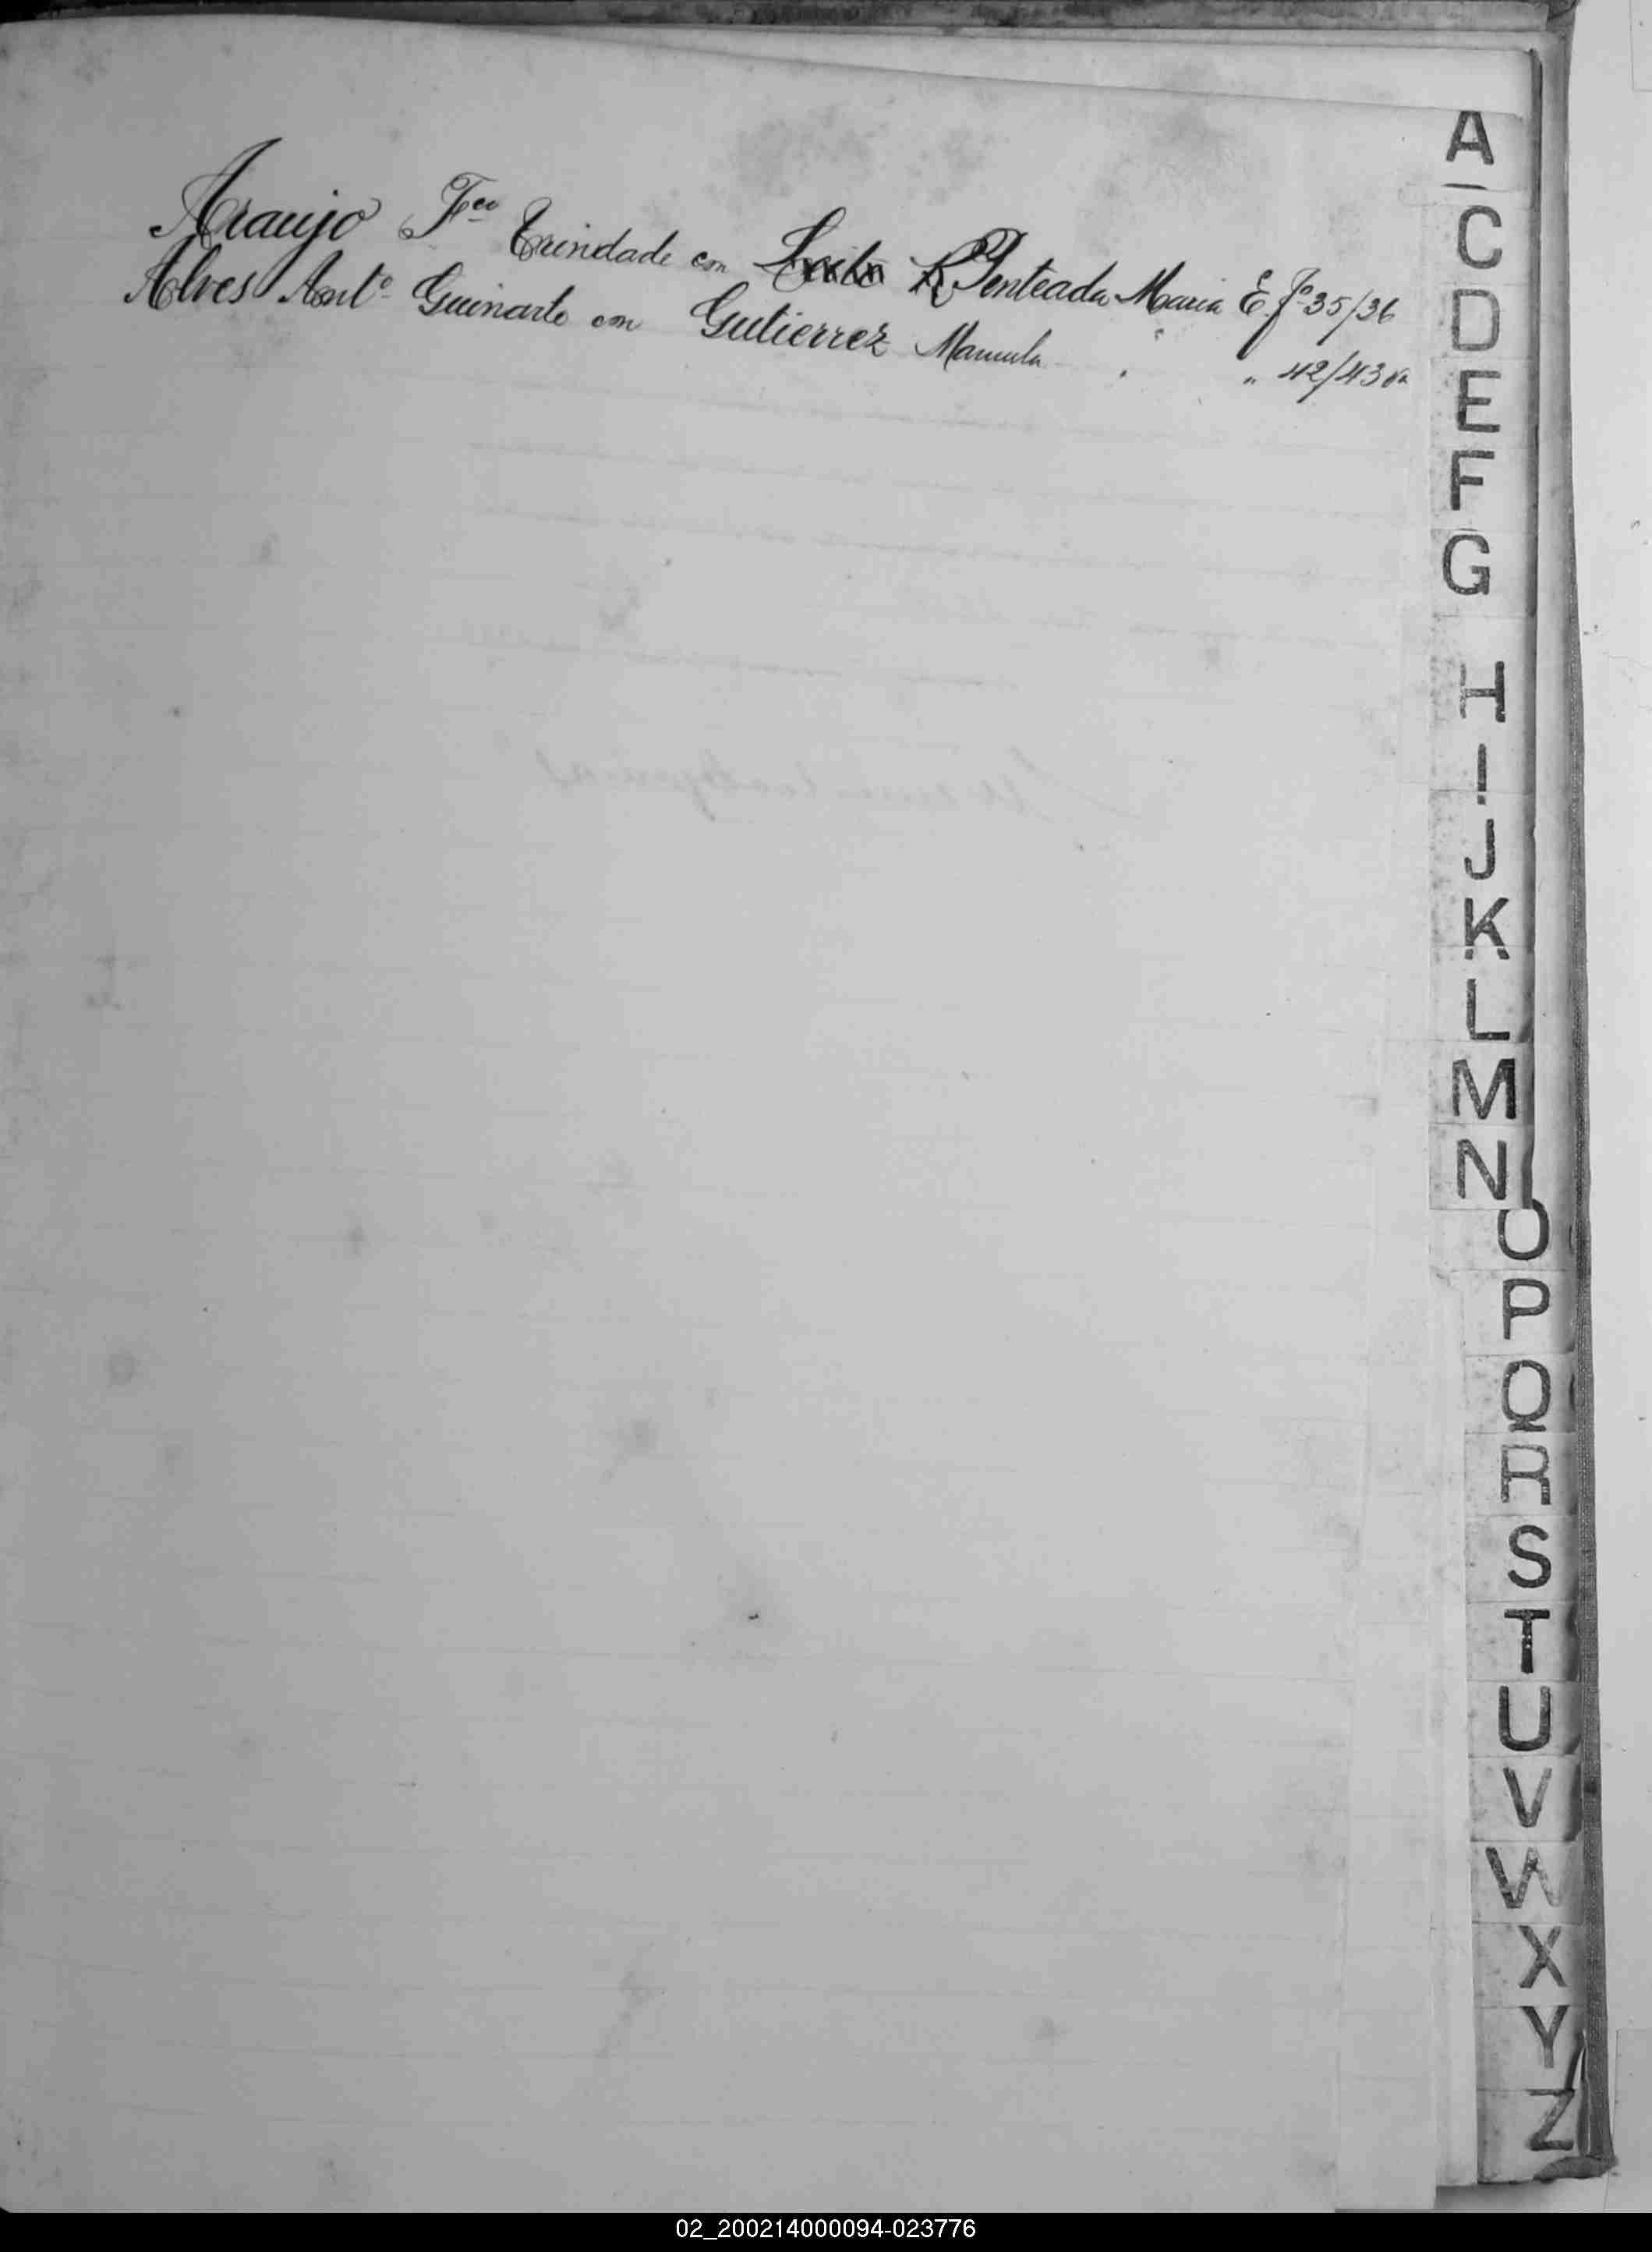 Araujo Fco Trindade con Penteada Maria E. fº 35/36
Alves Antº Guinarte con Gutierrez Manuela " " 42/43
A
C
D
E
F
G
H
I
J
K
L
M
N
O
P
Q
R
S
T
U
V
W
X
Y
Z
02_200214000094-023776